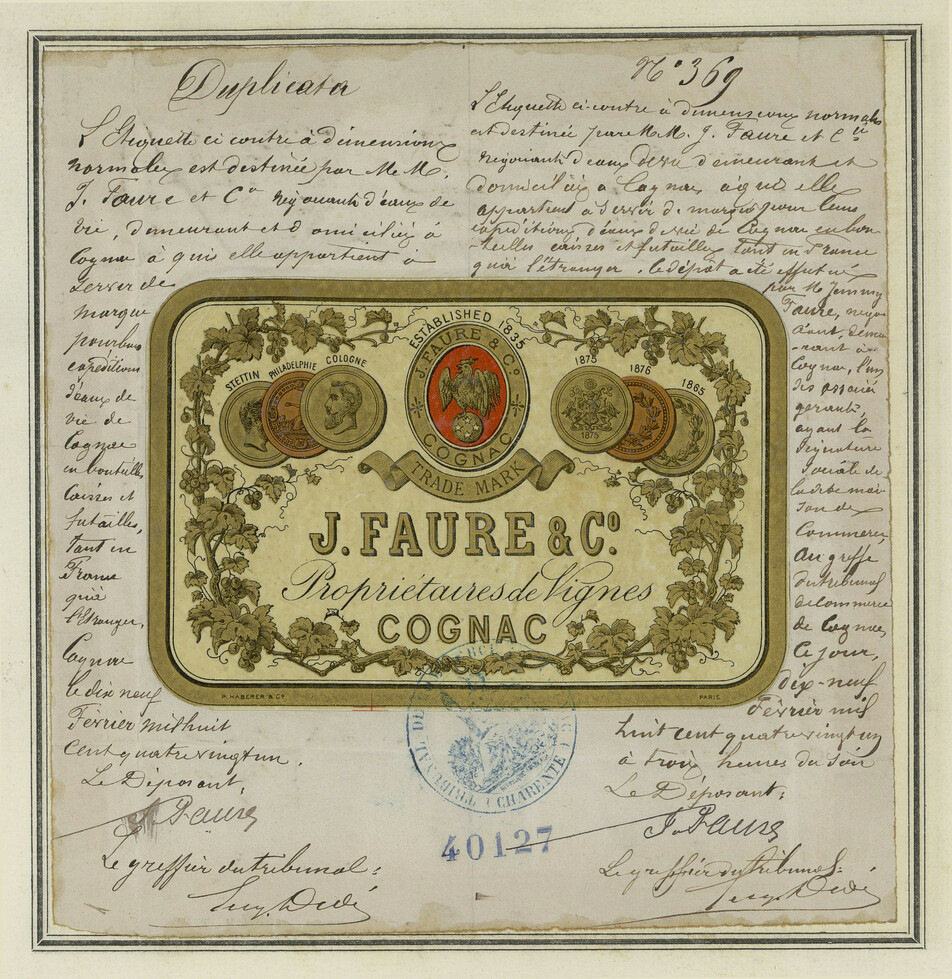 Duplicata
L'Etiquette ci contre à dimensions
normales est destinée par M.M.
J. Faure et Cie négociants d'eaux de
vie, demeurant et domiciliés à
Cognac à qui elle appartient à
servir de
marque
pour leurs
expéditions
d'eaux de
vie de
Cognac
en bouteilles
caisses et
futailles,
tant en
France
qu'à
l'Etranger,
Cognac
le dix neuf
Février mil huit
cent quatre vingt un.
Le Déposant,
J. Faure
Le greffier du tribunal:
N° 369
L'Etiquette ci-contre à dimensions normales
est destinée par M.M. J. Faure et Cie
négociants d'eaux de vie demeurant et
domiciliés à Cognac à qui elle
appartient à servir de marque pour leurs
expéditions d'eaux de vie de Cognac en bou-
-teilles caisses et futailles tant en France
qu'à l'étranger. le dépôt a été effectué
par M. Jemmy
Faure, négo-
ciant deme-
-rant à
Cognac, l'un
des associés
gérants,
ayant la
signature
sociale de
la dite mai-
son de
Commerce,
Au greffe
du tribunal
de Commerce
de Cognac,
Ce jour,
dix-neuf
Février mil
huit cent quatre vingt un
à trois heures du soir
Le Déposant,
J. Faure
Le greffier du tribunal:
ESTABLISHED 1835
J. FAURE & Co.
COGNAC
STETTIN PHILADELPHIE COLOGNE
1875 1876 1865
1875
TRADE MARK
J. FAURE & Co.
Propriétaires de Vignes
COGNAC
P. HABERER & Cie PARIS
TRIBUNAL DE COMMERCE
(CHARENTE)
40127